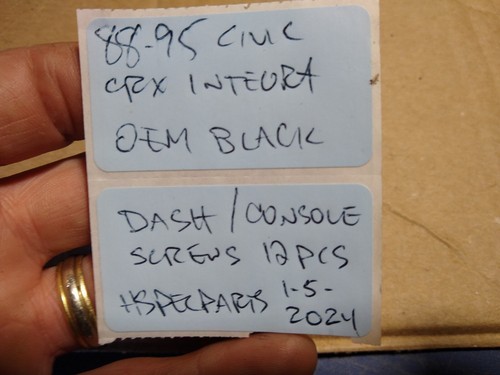 88-95 CIVIC
CRX INTEGRA
OEM BLACK
DASH/CONSOLE
SCREWS 12PCS
HSPECPARTS 1-5-
2024